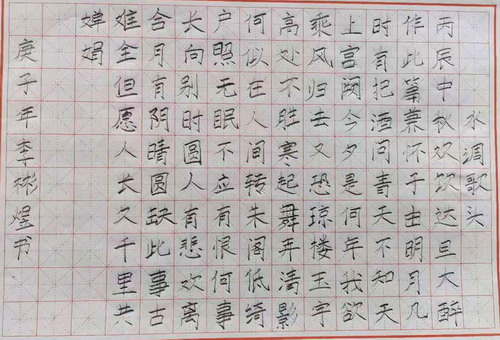 水调歌头
丙辰中秋欢饮达旦大醉
作此篇兼怀子由明月几
时有把酒问青天不知天
上宫阙今夕是何年我欲
乘风归去又恐琼楼玉宇
高处不胜寒起舞弄清影
何似在人间转朱阁低绮
户照无眠不应有恨何事
长向别时圆人有悲欢离
合月有阴晴圆缺此事古
难全但愿人长久千里共
婵娟
庚子年李彬煜书